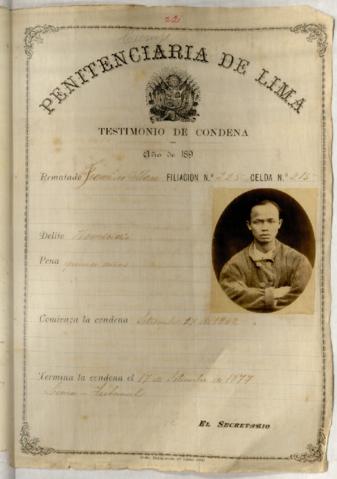 221
PENITENCIARIA DE LIMA
TESTIMONIO DE CONDENA
Año de 189
Rematado Francisco FILIACION N.º 225 CELDA N.º
Delito Homicidio
Pena quince años
Comienza la condena Setiembre de 1862
Termina la condena el 17 de Setiembre de 1877
Lima Tribunal
EL SECRETARIO